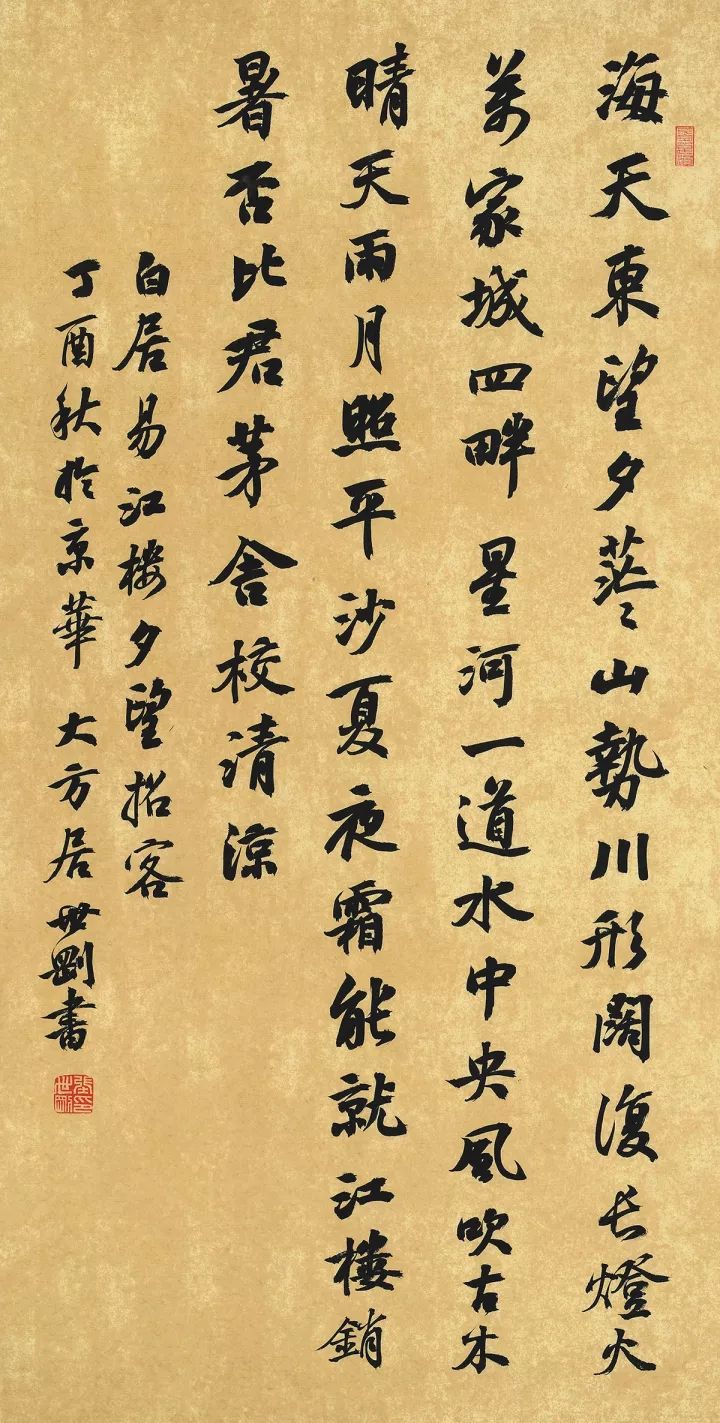 海天東望夕茫〻山勢川形闊復長燈火
萬家城四畔星河一道水中央風吹古木
晴天雨月照平沙夏夜霜能就江樓銷
暑否比君茅舍校清涼
白居易江樓夕望招客
丁酉秋於京華大方居世剛書